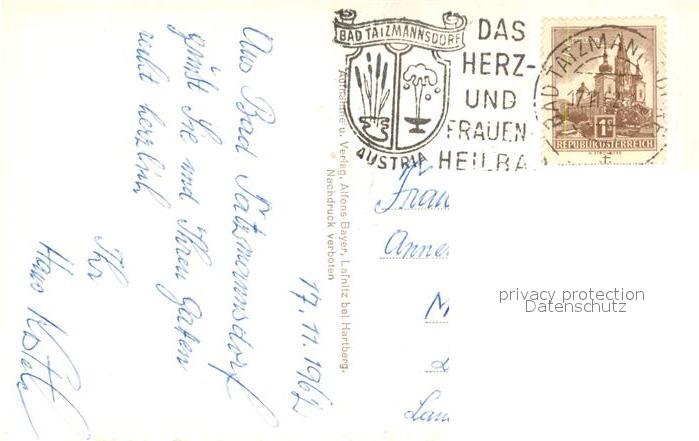 Aus Bad Tatzmannsdorf
grüßt Sie und Ihren Gatten
recht herzlich
Ihr
Hans
17.11.1962
Aufnahme u. Verlag, Alfons Bayer, Lafnitz bei Hartberg.
Nachdruck verboten
BAD TATZMANNSDORF
AUSTRIA
DAS
HERZ-
UND
FRAUEN-
HEILBA
BAD TATZMANN
1S
REPUBLIK ÖSTERREICH
Frau
Anne
M
privacy protection
Datenschutz